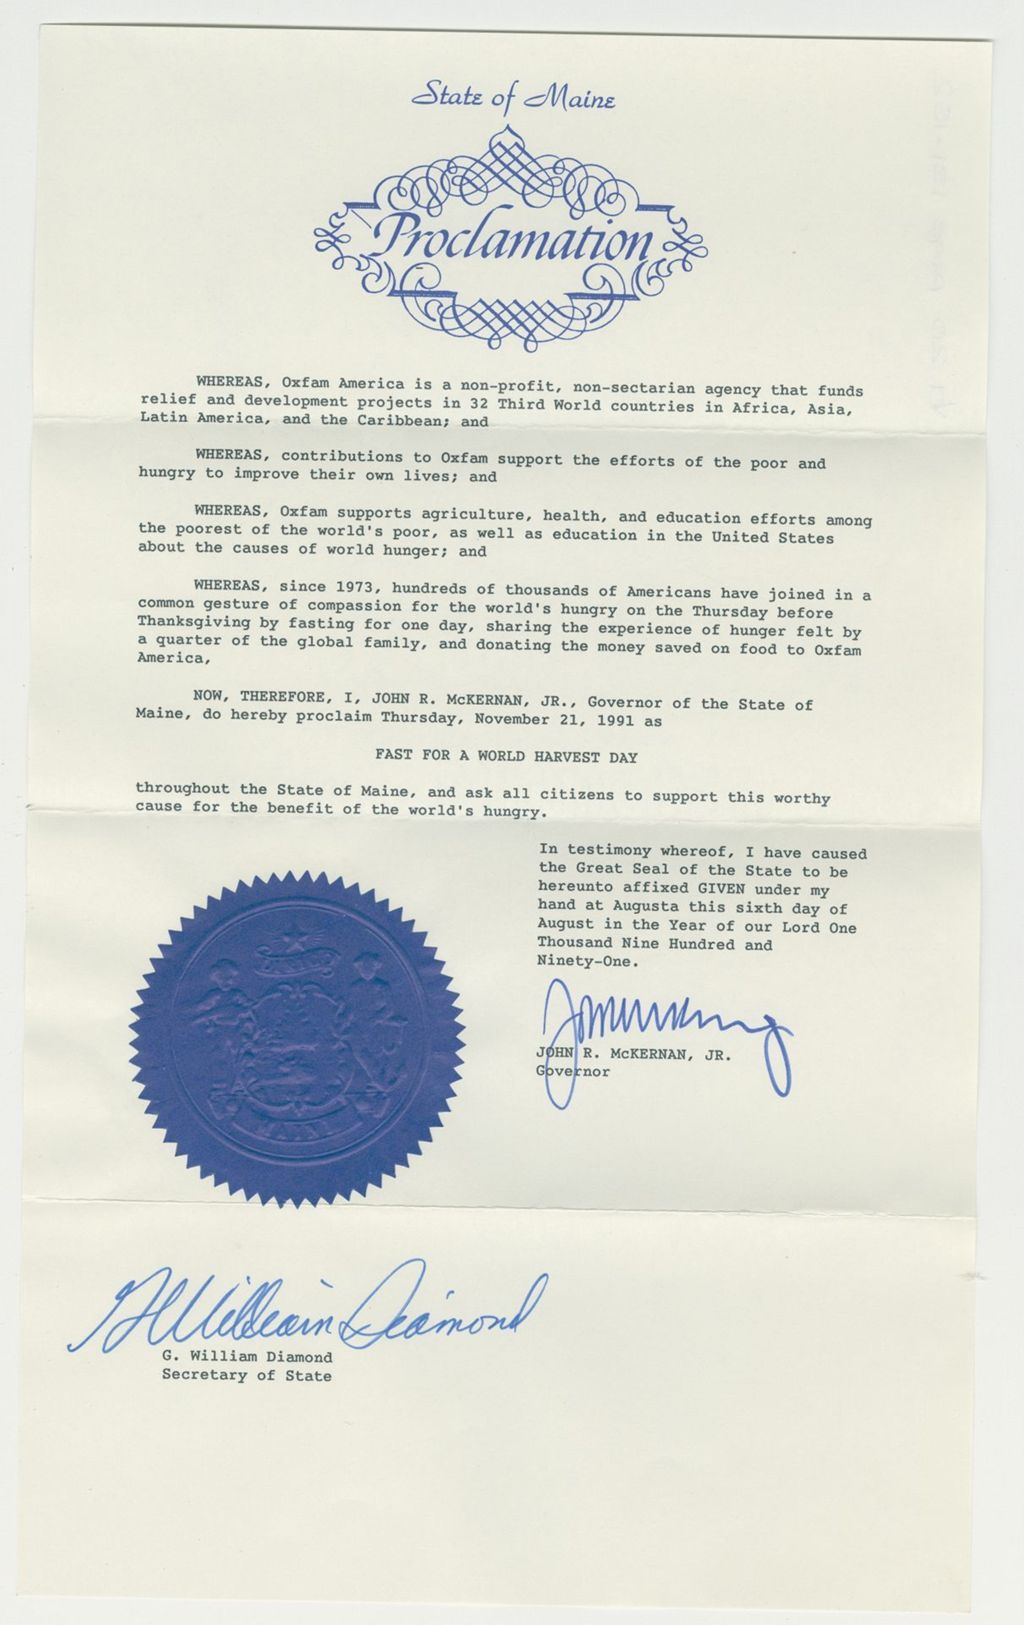 State of Maine
Proclamation
WHEREAS, Oxfam America is a non-profit, non-sectarian agency that funds
relief and development projects in 32 Third World countries in Africa, Asia,
Latin America, and the Caribbean; and
WHEREAS, contributions to Oxfam support the efforts of the poor and
hungry to improve their own lives; and
WHEREAS, Oxfam supports agriculture, health, and education efforts among
the poorest of the world's poor, as well as education in the United States
about the causes of world hunger; and
WHEREAS, since 1973, hundreds of thousands of Americans have joined in a
common gesture of compassion for the world's hungry on the Thursday before
Thanksgiving by fasting for one day, sharing the experience of hunger felt by
a quarter of the global family, and donating the money saved on food to Oxfam
America,
NOW, THEREFORE, I, JOHN R. McKERNAN, JR., Governor of the State of
Maine, do hereby proclaim Thursday, November 21, 1991 as
FAST FOR A WORLD HARVEST DAY
throughout the State of Maine, and ask all citizens to support this worthy
cause for the benefit of the world's hungry.
In testimony whereof, I have caused
the Great Seal of the State to be
hereunto affixed GIVEN under my
hand at Augusta this sixth day of
August in the Year of our Lord One
Thousand Nine Hundred and
Ninety-One.
JOHN R. McKERNAN, JR.
Governor
MAINE
G William Diamond
G. William Diamond
Secretary of State